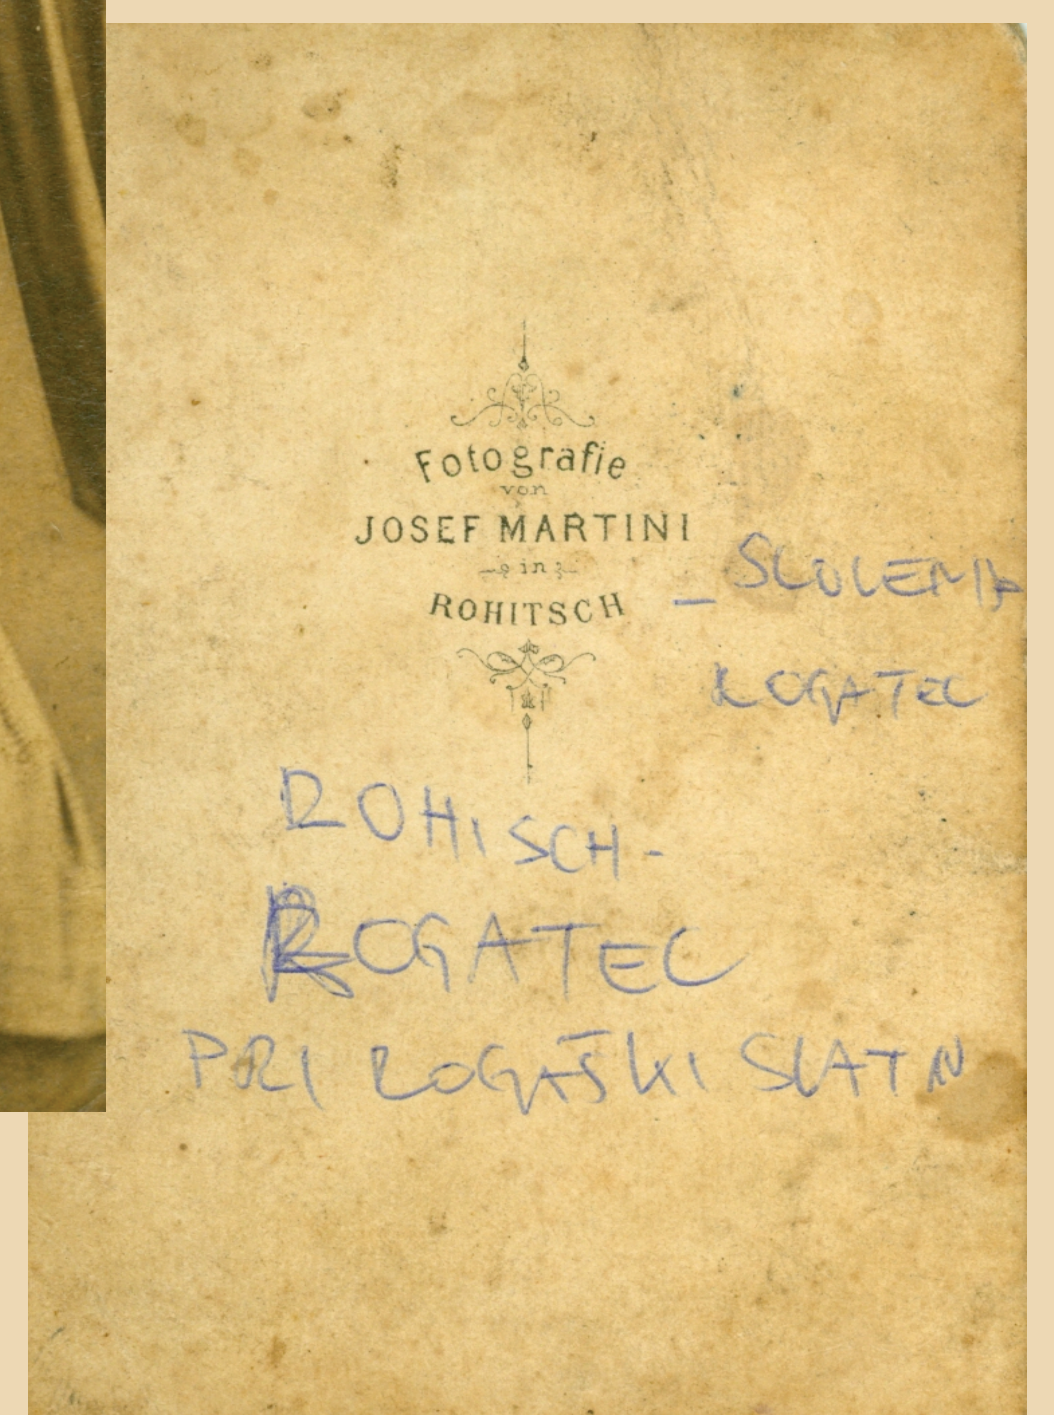 Fotografie
von
JOSEF MARTINI
in
ROHITSCH
ROGATEC
ROHISCH-
ROGATEC
PRI ROGAŠKI SLATN